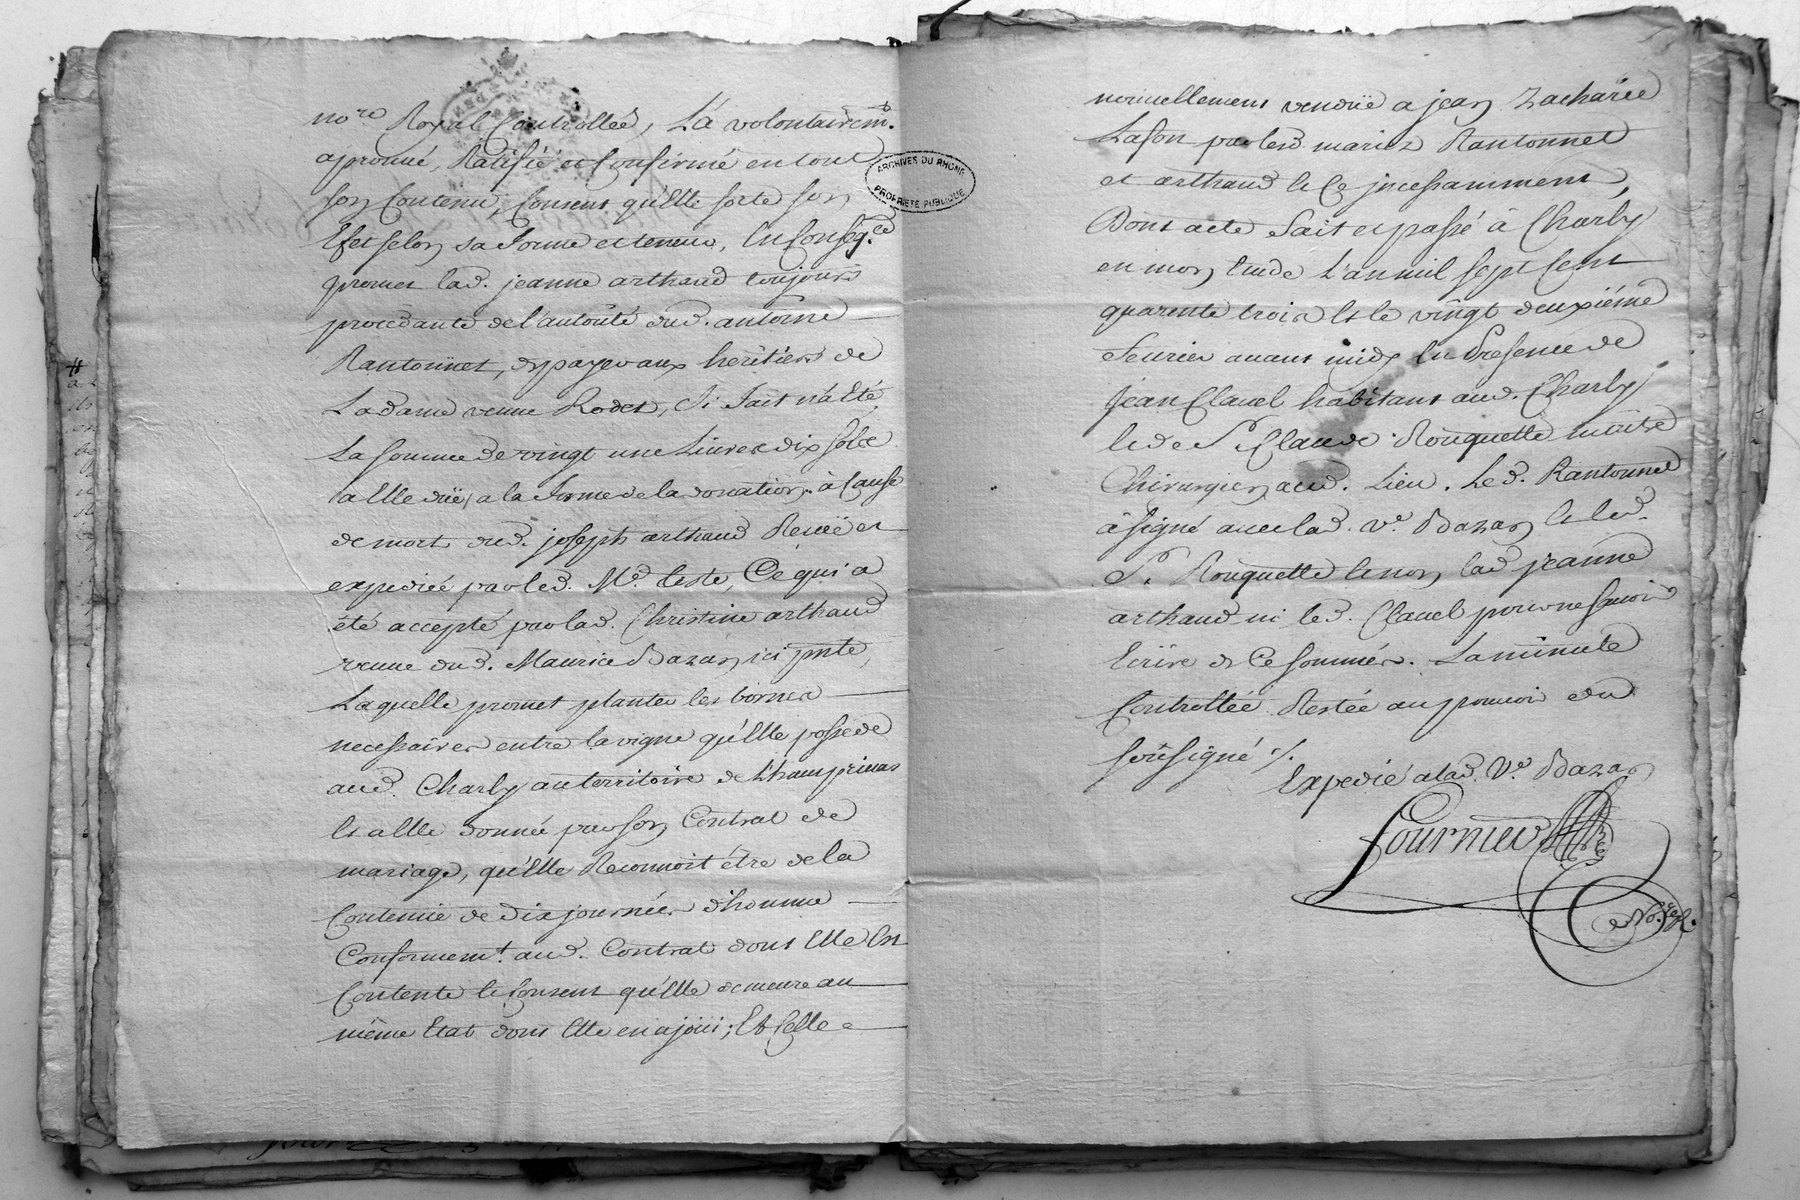 no.re Royal Controllée, L'a volontairem.t
aprouvé, Ratifié et Confirmé en tout
son Contenu, Consent qu'elle sorte son
Efet selon sa forme et teneur, En Conseq.ce
promet lad. jeanne arthaud toujours
procedante de l'autorité dud. antoine
Rantonnet, de payer aux heritiers de
La dame veuve Rodet, si fait n'a Eté
La somme de vingt une Livres dix sols
a Elle düe, a la forme de la donation à Cause
de mort dud. joseph arthaud Recüe et
expediée par led. Me. teste, Ce qui a
été accepté par lad. Christine arthaud
veuve dud. Maurice Bazan, ici pnte,
Laquelle promet planter les bornes
necessaires entre la vigne qu'Elle possede
aud. Charly au territoire de
Et a Elle donnée par son Contrat de
mariage, qu'Elle Reconnoit être de la
Contenüe de dix journées d'homme
Conformem.t aud. Contrat dont Elle Est
Contente et Consent qu'Elle demeure au
même Etat dont Elle en a joüi; Et Celle
ARCHIVES DU RHONE
PROPRIETE PUBLIQUE
nouvellement vendüe a jean Zacharie
Lafon par lesd. mariez Rantonnet
et arthaud et Ce incessamment,
Dont acte fait et passé à Charly
en mon Etude L'an mil sept Cent
quarente trois Et le vingt deuxiéme
fevrier avant midy En Presence de
Jean Clavel habitant aud. Charly
et de Sr. Claude Rouquette maitre
Chirurgien aud. Lieu. Led. Rantonnet
à signé avec lad. Ve. Bazan Et led.
Sr. Rouquette et non lad. jeanne
arthaud ni led. Clavel pour ne sçavoir
Ecrire de Ce sommés. La minute
Controllée Restée au pouvoir du
soussigné ./.
Expedié a lad. Ve. Bazan
Fournier
No.re R.